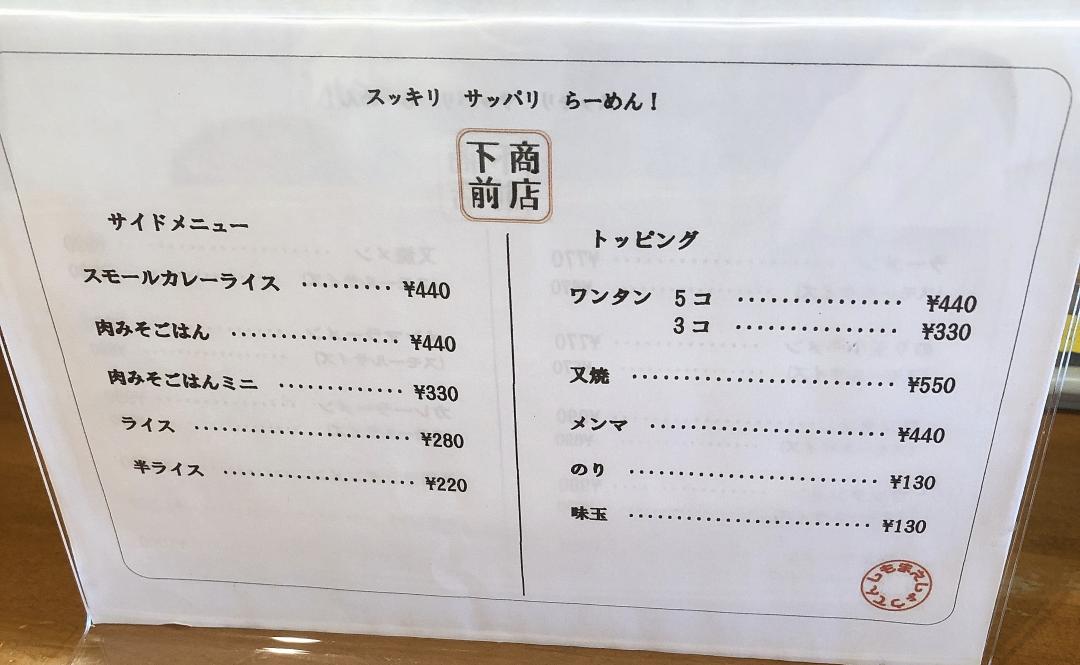 スッキリ サッパリ らーめん！
下前
商店
サイドメニュー
スモールカレーライス ・・・・・・・・・ ¥440
肉みそごはん ・・・・・・・・・・・・・・ ¥440
肉みそごはんミニ ・・・・・・・・・・・・ ¥330
ライス ・・・・・・・・・・・・・・・・・・・・ ¥280
半ライス ・・・・・・・・・・・・・・・・・・ ¥220
トッピング
ワンタン 5コ ・・・・・・・・・・・・・・・ ¥440
3コ ・・・・・・・・・・・・・・・ ¥330
叉焼 ・・・・・・・・・・・・・・・・・・・・・・・ ¥550
メンマ ・・・・・・・・・・・・・・・・・・・・・ ¥440
のり ・・・・・・・・・・・・・・・・・・・・・・・ ¥130
味玉 ・・・・・・・・・・・・・・・・・・・・・・・ ¥130
しもまえしょうてん